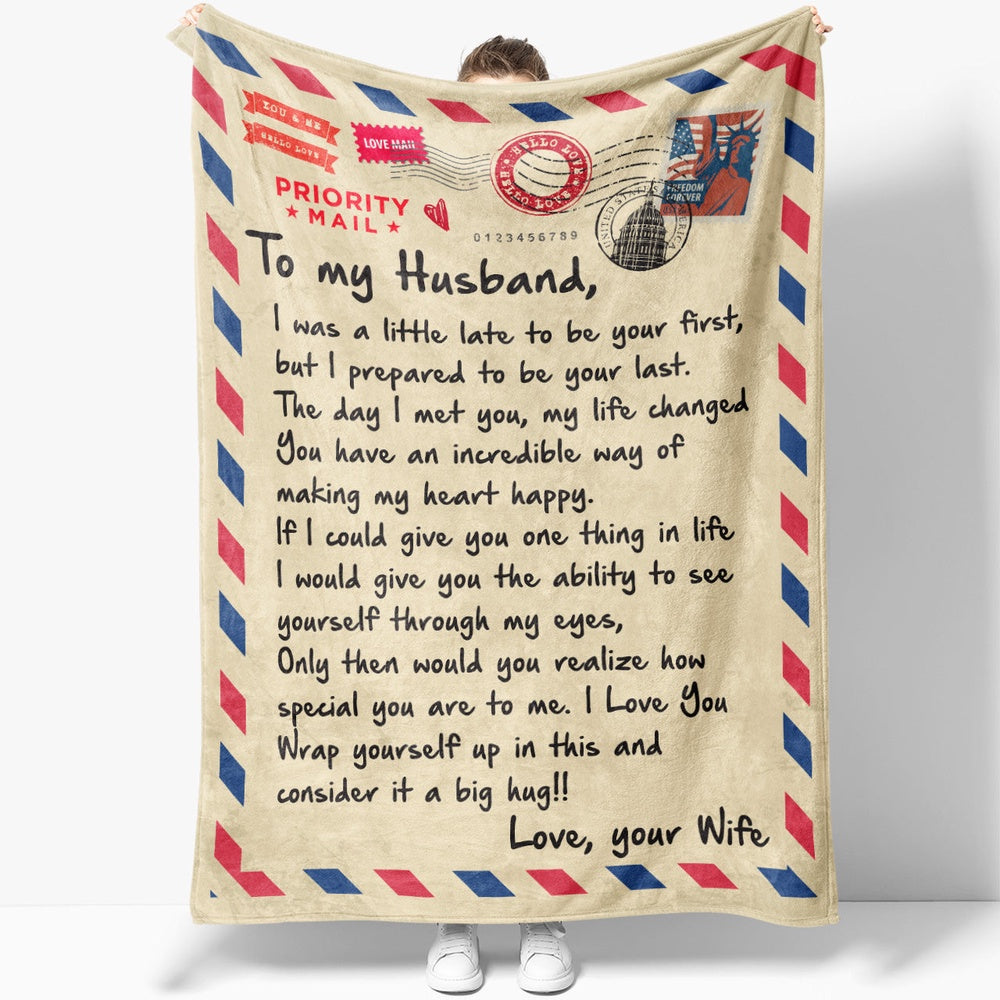 YOU & ME
HELLO LOVE
LOVE MAIL
HELLO LOVE
HELLO LOVE
PRIORITY
MAIL
0123456789
FREEDOM
FOREVER
UNITED STATES AMERICA
To my Husband,
I was a little late to be your first,
but I prepared to be your last.
The day I met you, my life changed
You have an incredible way of
making my heart happy.
If I could give you one thing in life
I would give you the ability to see
yourself through my eyes,
Only then would you realize how
special you are to me. I Love You
Wrap yourself up in this and
consider it a big hug!!
Love, your Wife